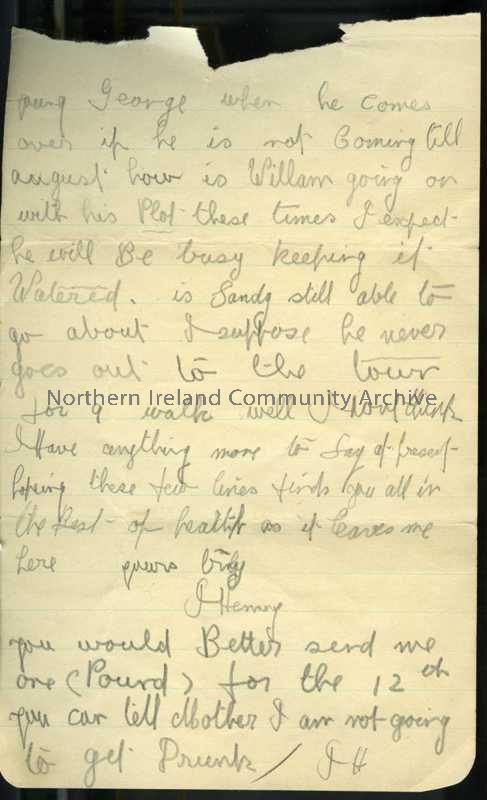 young George when he comes
over if he is not Coming till
august how is Willam going on
with his Plot these times I expect
he will Be busy keeping it
Watered. is Sandy still able to
go about I suppose he never
goes out to the town
Northern Ireland Community Archive
for a walk well I dont think
I Have anything more to Say at present
hoping these few lines finds you all in
the Best of health as it Leaves me
here yours truly
J Henry
you would Better send me
one (Pound) for the 12th
you can tell Mother I am not going
to get Drunk / J H